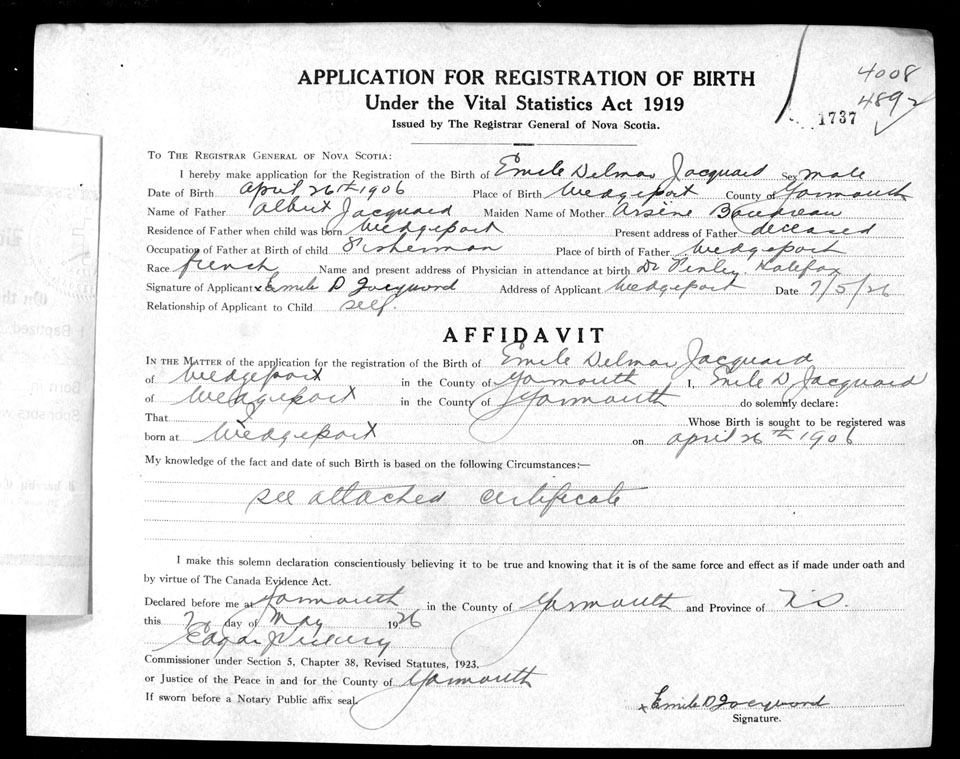 4008
4892
1737
APPLICATION FOR REGISTRATION OF BIRTH
Under the Vital Statistics Act 1919
Issued by The Registrar General of Nova Scotia.
TO THE REGISTRAR GENERAL OF NOVA SCOTIA:
I hereby make application for the Registration of the Birth of Emile Delmar Jacquard Sex male
Date of Birth april 26th 1906 Place of Birth Wedgeport County of Yarmouth
Name of Father albert Jacquard Maiden Name of Mother Arsène Boudreau
Residence of Father when child was born Wedgeport Present address of Father deceased
Occupation of Father at Birth of child Fisherman Place of birth of Father Wedgeport
Race french Name and present address of Physician in attendance at birth Dr Halifax
Signature of Applicant x Emile D Jacquard Address of Applicant Wedgeport Date 7/5/26
Relationship of Applicant to Child self.
AFFIDAVIT
IN THE MATTER of the application for the registration of the Birth of Emile Delmar Jacquard
of Wedgeport in the County of Yarmouth I, Emile D Jacquard
of Wedgeport in the County of Yarmouth do solemnly declare:
That I Whose Birth is sought to be registered was
born at Wedgeport on april 26th 1906
My knowledge of the fact and date of such Birth is based on the following Circumstances:—
see attached certificate
I make this solemn declaration conscientiously believing it to be true and knowing that it is of the same force and effect as if made under oath and
by virtue of The Canada Evidence Act.
Declared before me at Yarmouth in the County of Yarmouth and Province of N.S.
this 7 day of May 1926
Edgar
Commissioner under Section 5, Chapter 38, Revised Statutes, 1923,
or Justice of the Peace in and for the County of Yarmouth
If sworn before a Notary Public affix seal.
x Emile D Jacquard
Signature.